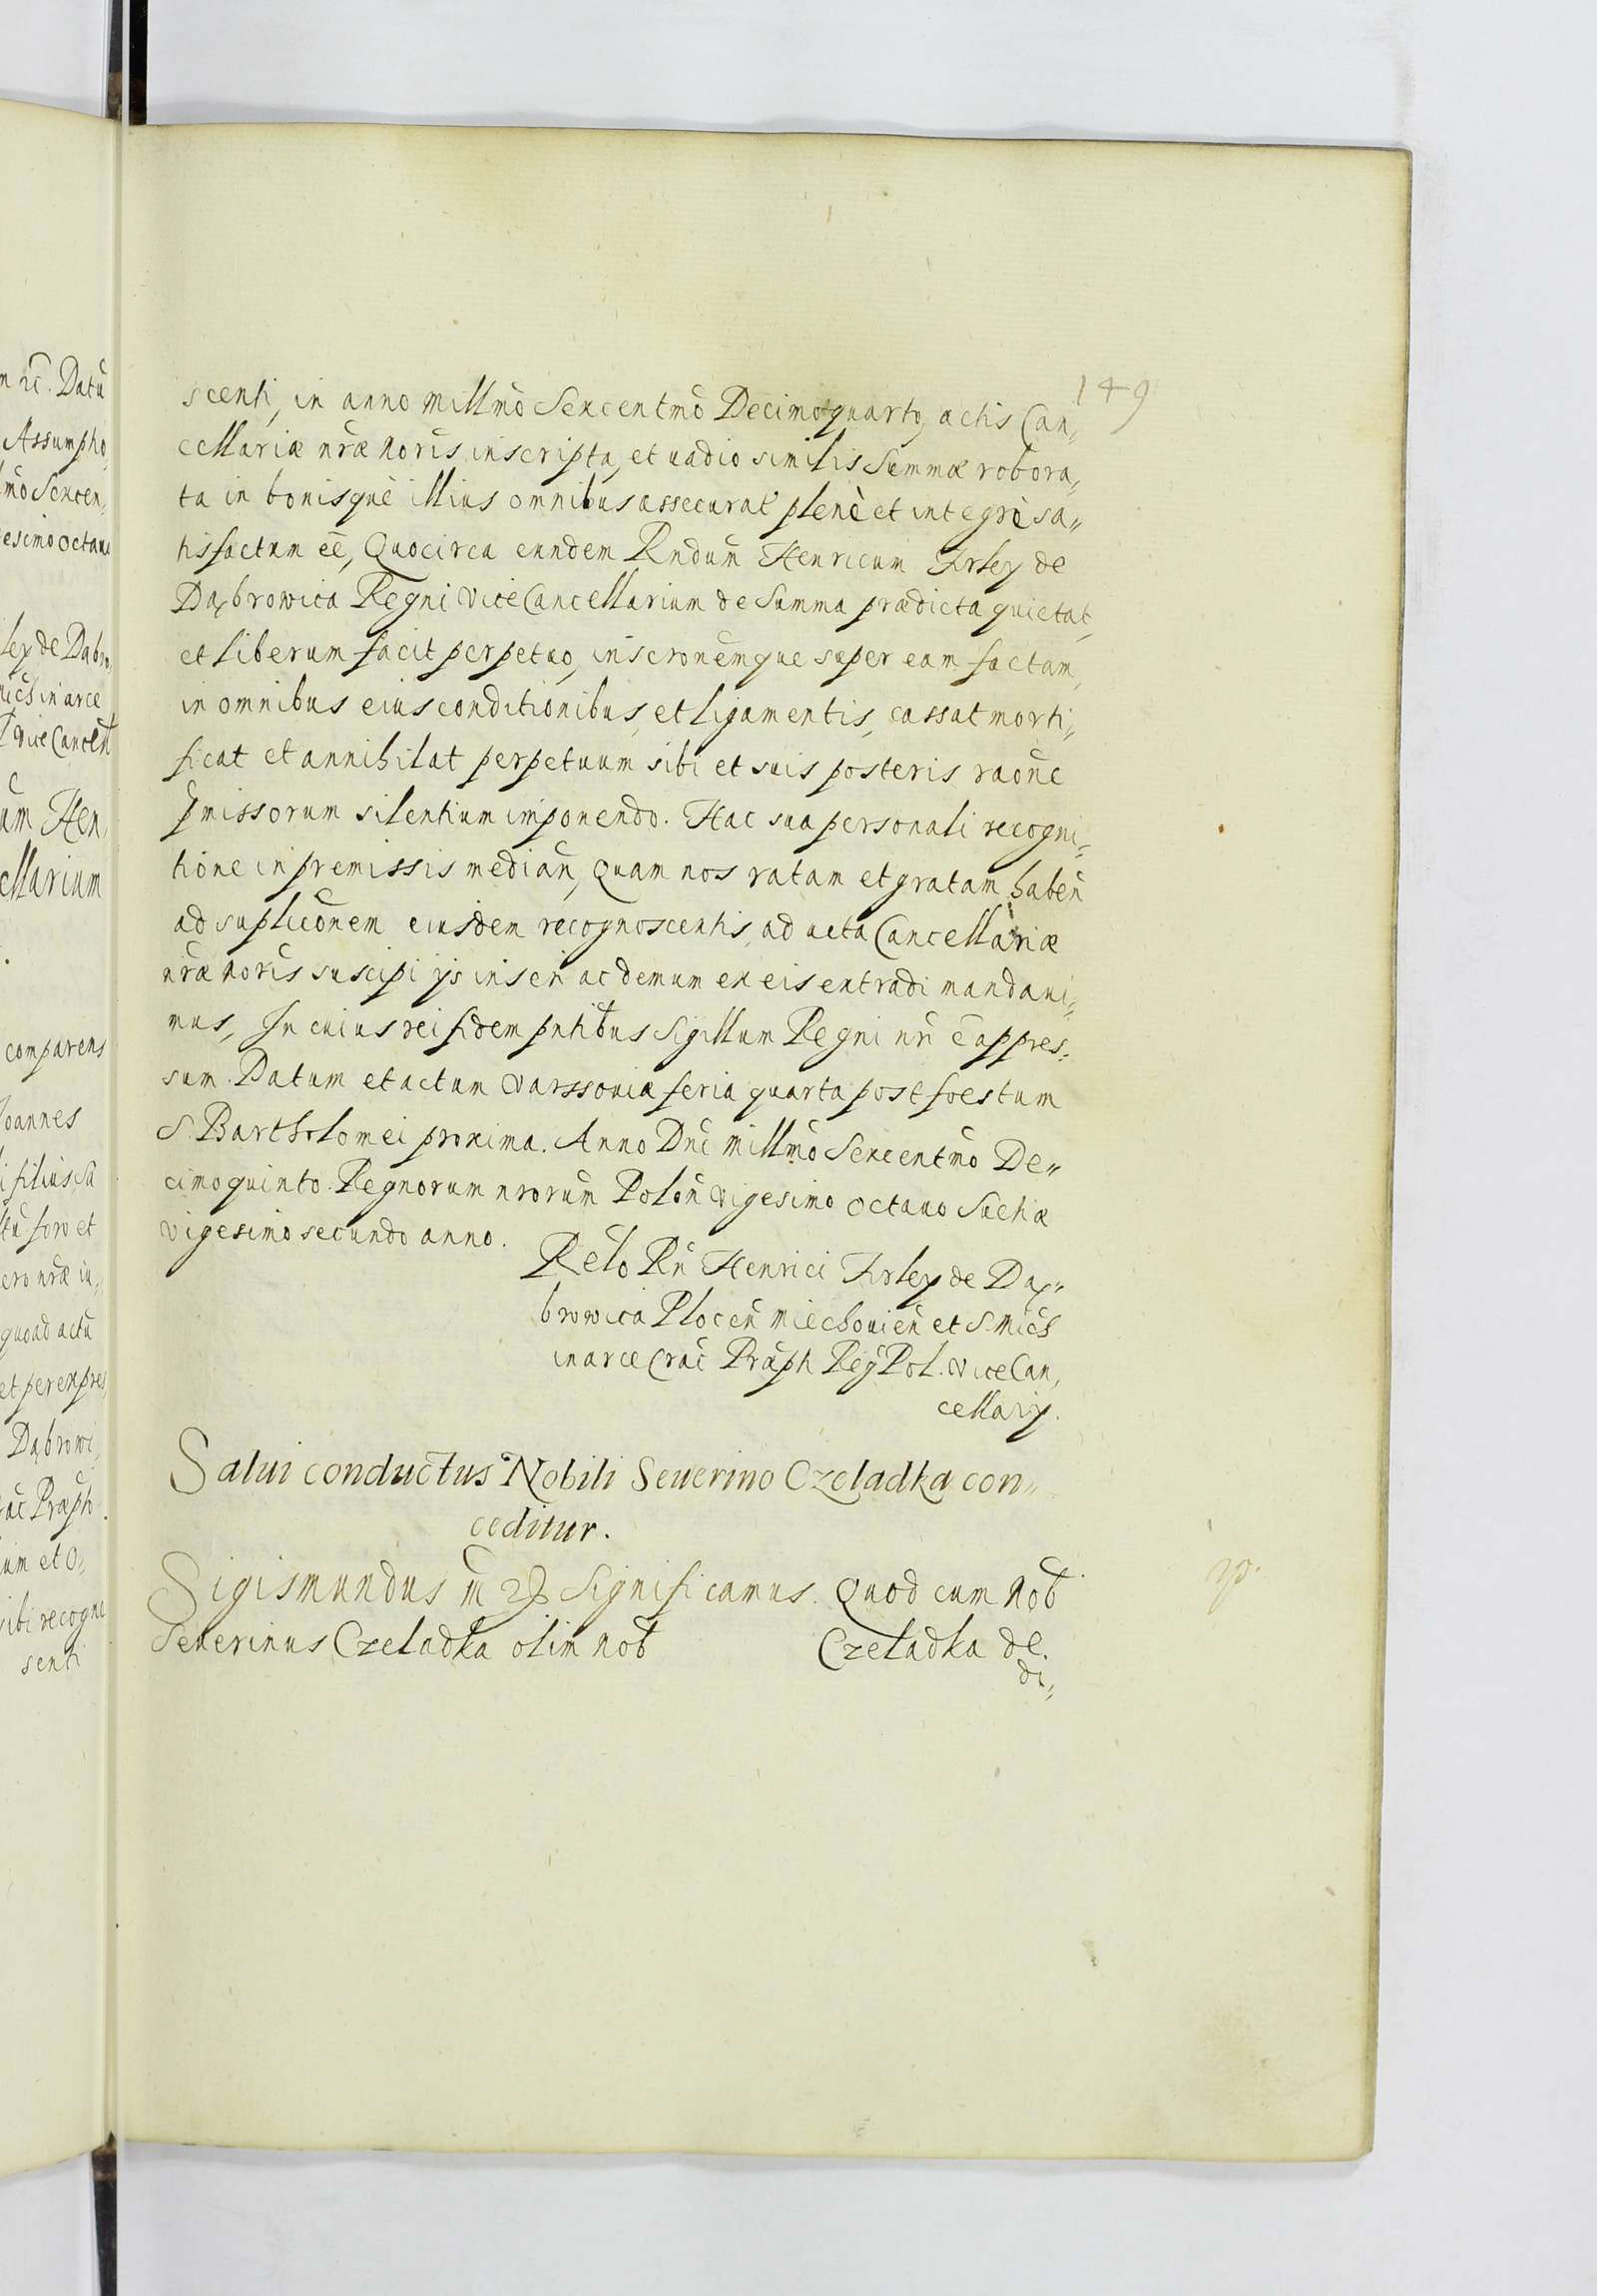 149
scenti, in anno Millmo Sexcentmo Decimoquarto, actis Can,,
cellariæ nræ Noris inscripta, et vadio similis Summæ robora,,
ta in bonisque illius omnibus assecurat plenè et integrè sa,,
tisfactum eē, Quocirca eundem Rndum Henricum Firley de
Dąbrowica Regni ViceCancellarium de Summa prædicta quietat,
et liberum facit perpetuo, inscronemque super eam factam,
in omnibus eius conditionibus, et ligamentis, cassat morti,,
ficat et annihilat perpetuum sibi et suis posteris raone
pmissorum silentium imponendo. Hac sua personali recogni,,
tione in premissis median, Quam nos ratam et gratam haben
ad suplicõnem eiusdem recognoscentis, ad acta Cancellariæ
nræ Noris suscipi ijs inseri ac demum ex eis extradi mandavi,,
mus, In cuius rei fidem pntibus Sigillum Regni nri ē appres,,
sum. Datum et actum Varssoviæ feria quarta post foestum
S. Bartholomei proxima. Anno Dni Millmo Sexcentmo De,,
cimoquinto. Regnorum nrorum Polon Vigesimo octavo Suetiæ
Vigesimo secundo anno.
Relo Rn Henrici Firley de Dą,,
browica Plocen Miechovien et S. Mich
in arce Crac Præpti Reg Pol. ViceCan,
cellarij.
Salui conductus Nobili Seuerino Czeladka con,,
ceditur.
Sigismundus III etc Significamus. Quod cum Nob
Seuerinus Czeladka olim Nob Czeladka de.
di,,